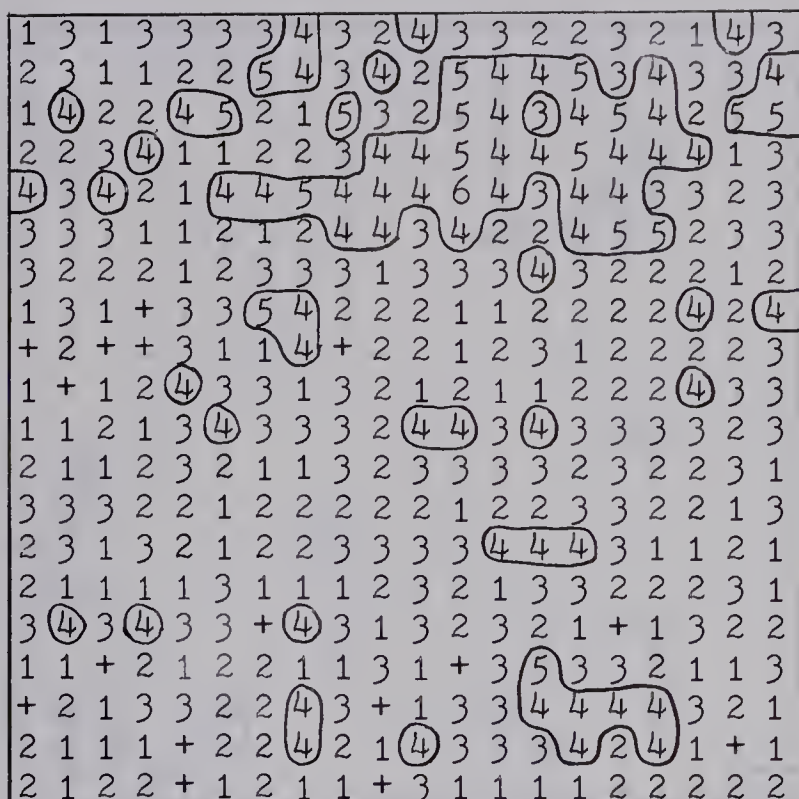 1 3 1 3 3 3 3 4 3 2 4 3 3 2 2 3 2 1 4 3
2 3 1 1 2 2 5 4 3 4 2 5 4 4 5 3 4 3 3 4
1 4 2 2 4 5 2 1 5 3 2 5 4 3 4 5 4 2 5 5
2 2 3 4 1 1 2 2 3 4 4 5 4 4 5 4 4 4 1 3
4 3 4 2 1 4 4 5 4 4 4 6 4 3 4 4 3 3 2 3
3 3 3 1 1 2 1 2 4 4 3 4 2 2 4 5 5 2 3 3
3 2 2 2 1 2 3 3 3 1 3 3 3 4 3 2 2 2 1 2
1 3 1 + 3 3 5 4 2 2 2 1 1 2 2 2 2 4 2 4
+ 2 + + 3 1 1 4 + 2 2 1 2 3 1 2 2 2 2 3
1 + 1 2 4 3 3 1 3 2 1 2 1 1 2 2 2 4 3 3
1 1 2 1 3 4 3 3 3 2 4 4 3 4 3 3 3 3 2 3
2 1 1 2 3 2 1 1 3 2 3 3 3 3 2 3 2 2 3 1
3 3 3 2 2 1 2 2 2 2 2 1 2 2 3 3 2 2 1 3
2 3 1 3 2 1 2 2 3 3 3 3 4 4 4 3 1 1 2 1
2 1 1 1 1 3 1 1 1 2 3 2 1 3 3 2 2 2 3 1
3 4 3 4 3 3 + 4 3 1 3 2 3 2 1 + 1 3 2 2
1 1 + 2 1 2 2 1 1 3 1 + 3 5 3 3 2 1 1 3
+ 2 1 3 3 2 2 4 3 + 1 3 3 4 4 4 4 3 2 1
2 1 1 1 + 2 2 4 2 1 4 3 3 3 4 2 4 1 + 1
2 1 2 2 + 1 2 1 1 + 3 1 1 1 1 2 2 2 2 2